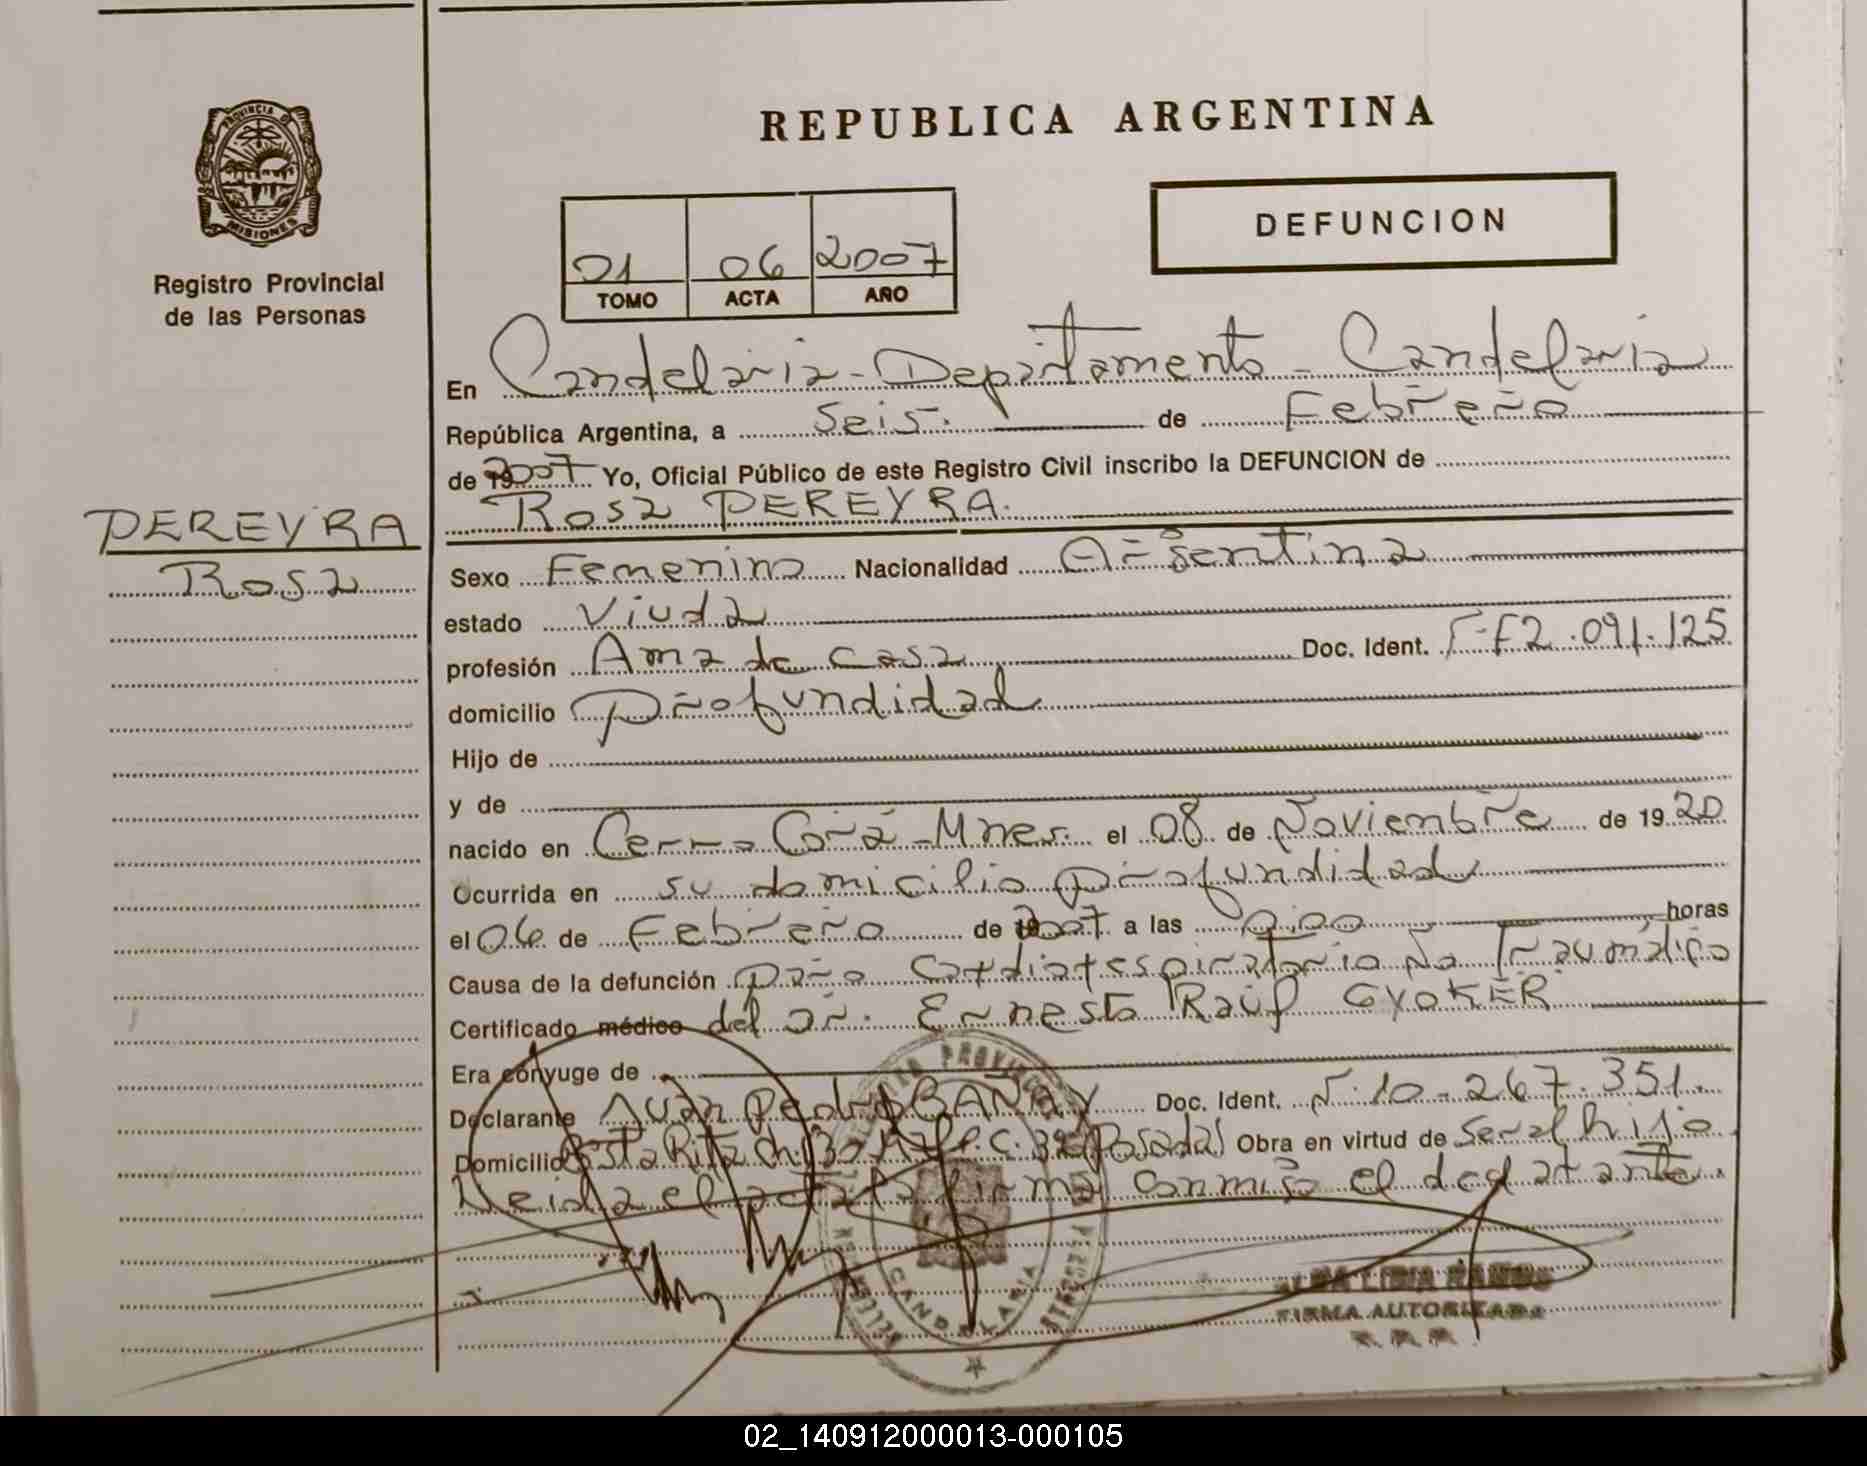 PROVINCIA DE
MISIONES
Registro Provincial
de las Personas
REPUBLICA ARGENTINA
DEFUNCION
01 06 2007
TOMO ACTA AÑO
En Candelaria - Departamento - Candelaria
República Argentina, a Seis. de Febrero
de 2007 Yo, Oficial Público de este Registro Civil inscribo la DEFUNCION de
Rosa PEREYRA.
PEREYRA
Rosa
Sexo Femenino Nacionalidad Argentina
estado Viuda
profesión Ama de casa Doc. Ident. F-F2.091.125
domicilio Profundidad
Hijo de
y de
nacido en Cerro Corá - Mnes. el 08 de Noviembre de 1920
Ocurrida en su domicilio profundidad
el 06 de Febrero de 2007 a las horas
Causa de la defunción paro cardiorespiratorio No Traumático
Certificado médico del Dr. Ernesto Raúl GYOKER
Era cónyuge de
Declarante Juan Pedro Doc. Ident. 10.267.351.
Domicilio Sta Rita Ch. (Posadas) Obra en virtud de Ser el hijo
Leida el acta firma conmigo el declarante.
CANDELARIA
FIRMA AUTORIZADA
02_140912000013-000105